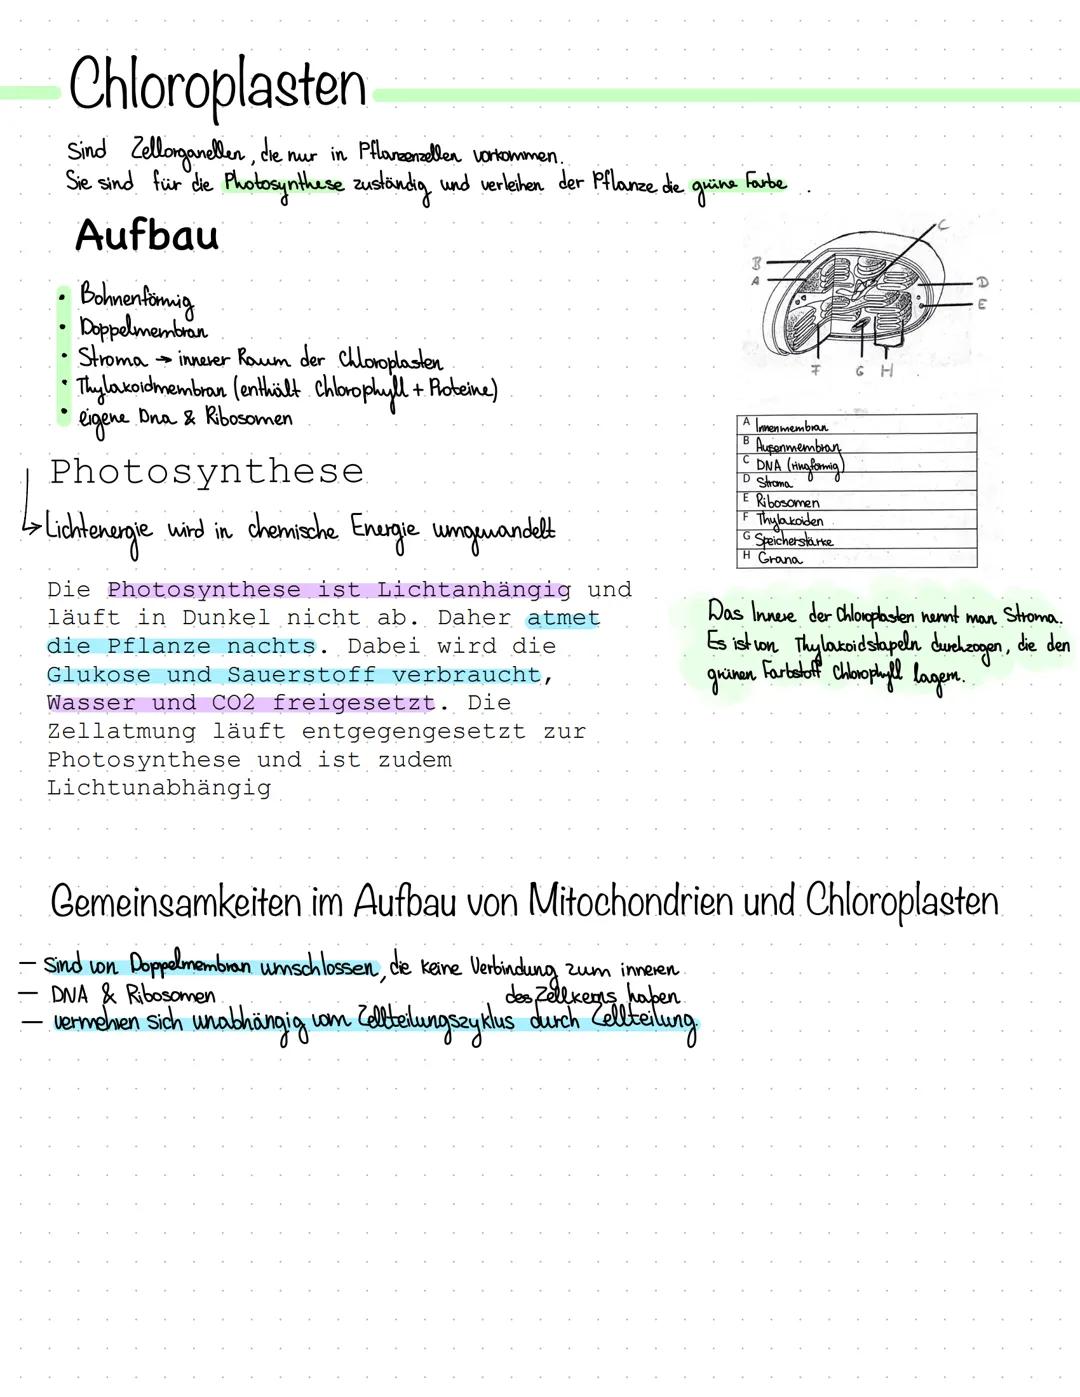 Chloroplasten
Sind Zellorganellen, die nur in Pflanzenzellen vorkommen.
Sie sind für die Photosynthese zuständig und verleihen der Pflanze die grüne Farbe.
Aufbau
• Bohnenförmig
• Doppelmembran
• Stroma → innerer Raum der Chloroplasten
• Thylakoidmembran (enthält Chlorophyll + Proteine)
• eigene Dna & Ribosomen
B
A
C
D
E
F G H
A Innenmembran
B Ausenmembran
C DNA (ringförmig)
D Stroma
E Ribosomen
F Thylakoiden
G Speicherstärke
H Grana
Photosynthese
↳ Lichtenergie wird in chemische Energie umgewandelt
Die Photosynthese ist Lichtanhängig und
läuft in Dunkel nicht ab. Daher atmet
die Pflanze nachts. Dabei wird die
Glukose und Sauerstoff verbraucht,
Wasser und CO2 freigesetzt. Die
Zellatmung läuft entgegengesetzt zur
Photosynthese und ist zudem
Lichtunabhängig
Das Innere der Chloroplasten nennt man Stroma.
Es ist von Thylakoidstapeln durchzogen, die den
grünen Farbstoff Chlorophyll lagern.
Gemeinsamkeiten im Aufbau von Mitochondrien und Chloroplasten
— Sind von Doppelmembran umschlossen, die keine Verbindung zum inneren
des Zellkerns haben
— DNA & Ribosomen
— vermehren sich unabhängig vom Zellteilungszyklus durch Zellteilung.